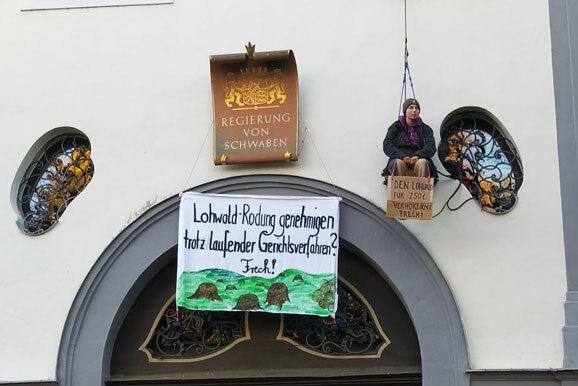 REGIERUNG
VON
SCHWABEN
Lohwald-Rodung genehmigen
trotz laufender Gerichtsverfahren?
Frech!
DEN LOHWALD
FÜR 250€
VERHÖKERN?
FRECH!